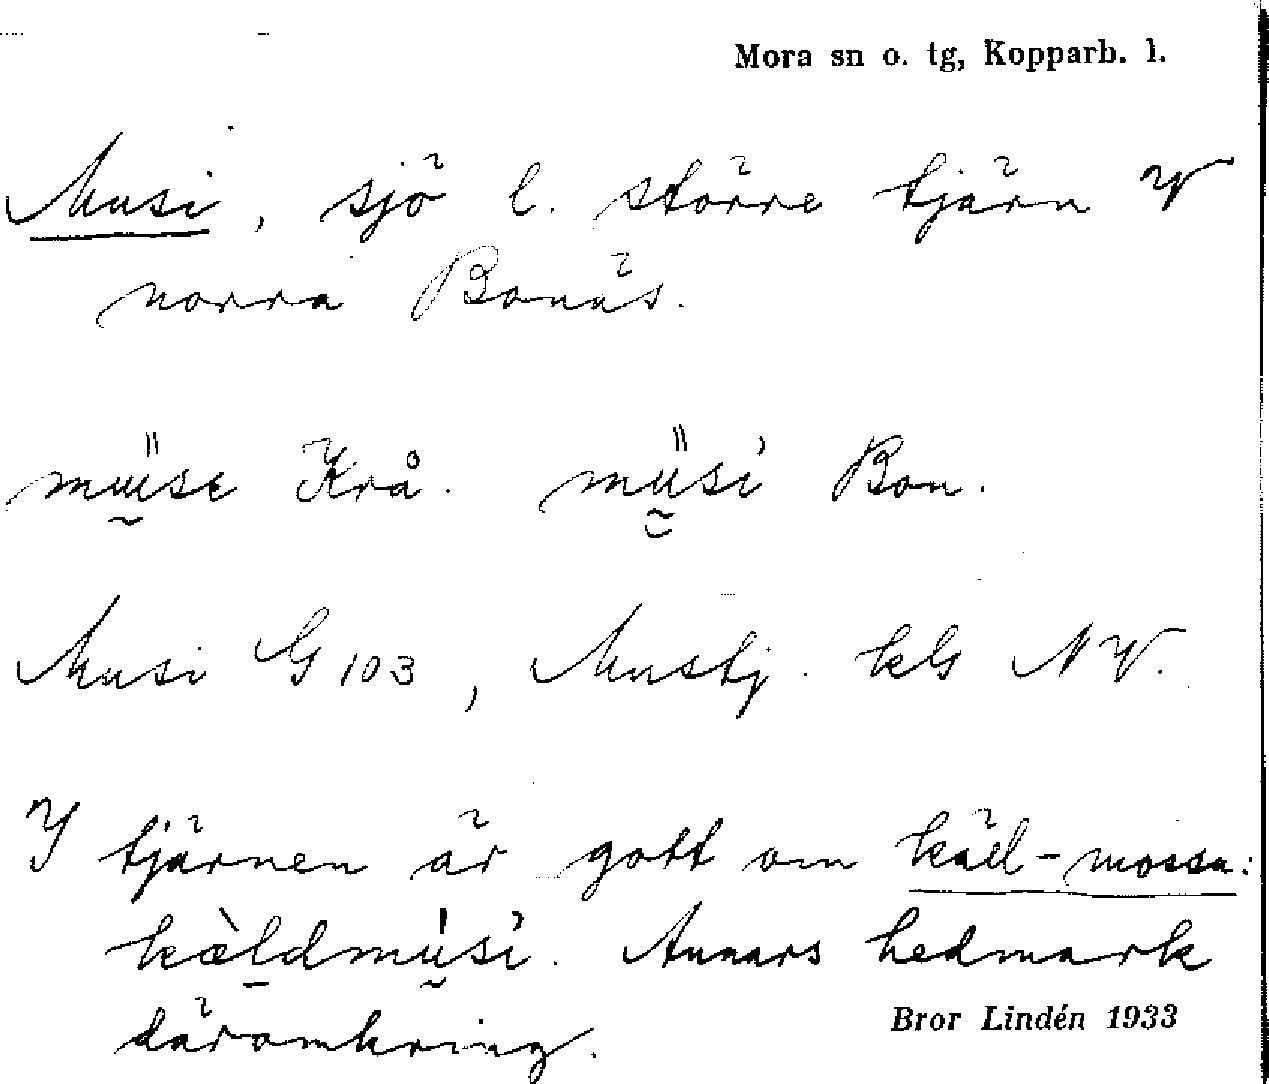 Mora sn o. tg, Kopparb. l.
Musi, sjö l. större tjärn V
norra Bonäs.
Krå. Bon.
Musi G 103, Mustj. kls NV.
I tjärnen är gott om käll-mossa:
kældmùsi. Annars hedmark
däromkring.
Bror Lindén 1933